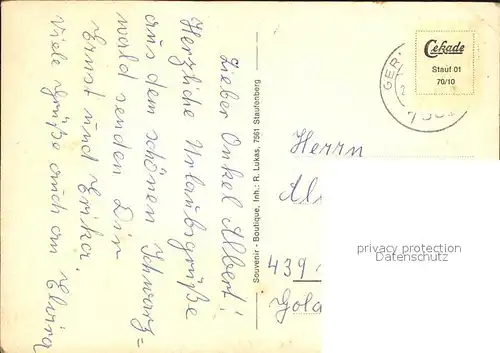 Lieber Onkel Albert!
Herzliche Urlaubsgrüße
aus dem schönen Schwarz=
wald senden Dir
Ernst und Erika.
Viele Grüße auch an Elvira
Souvenir - Boutique, Inh.: R. Lukas, 7561 Staufenberg
Cekade
Stauf 01
70/10
GER
Herrn
Al
439
Gla
privacy protection
Datenschutz